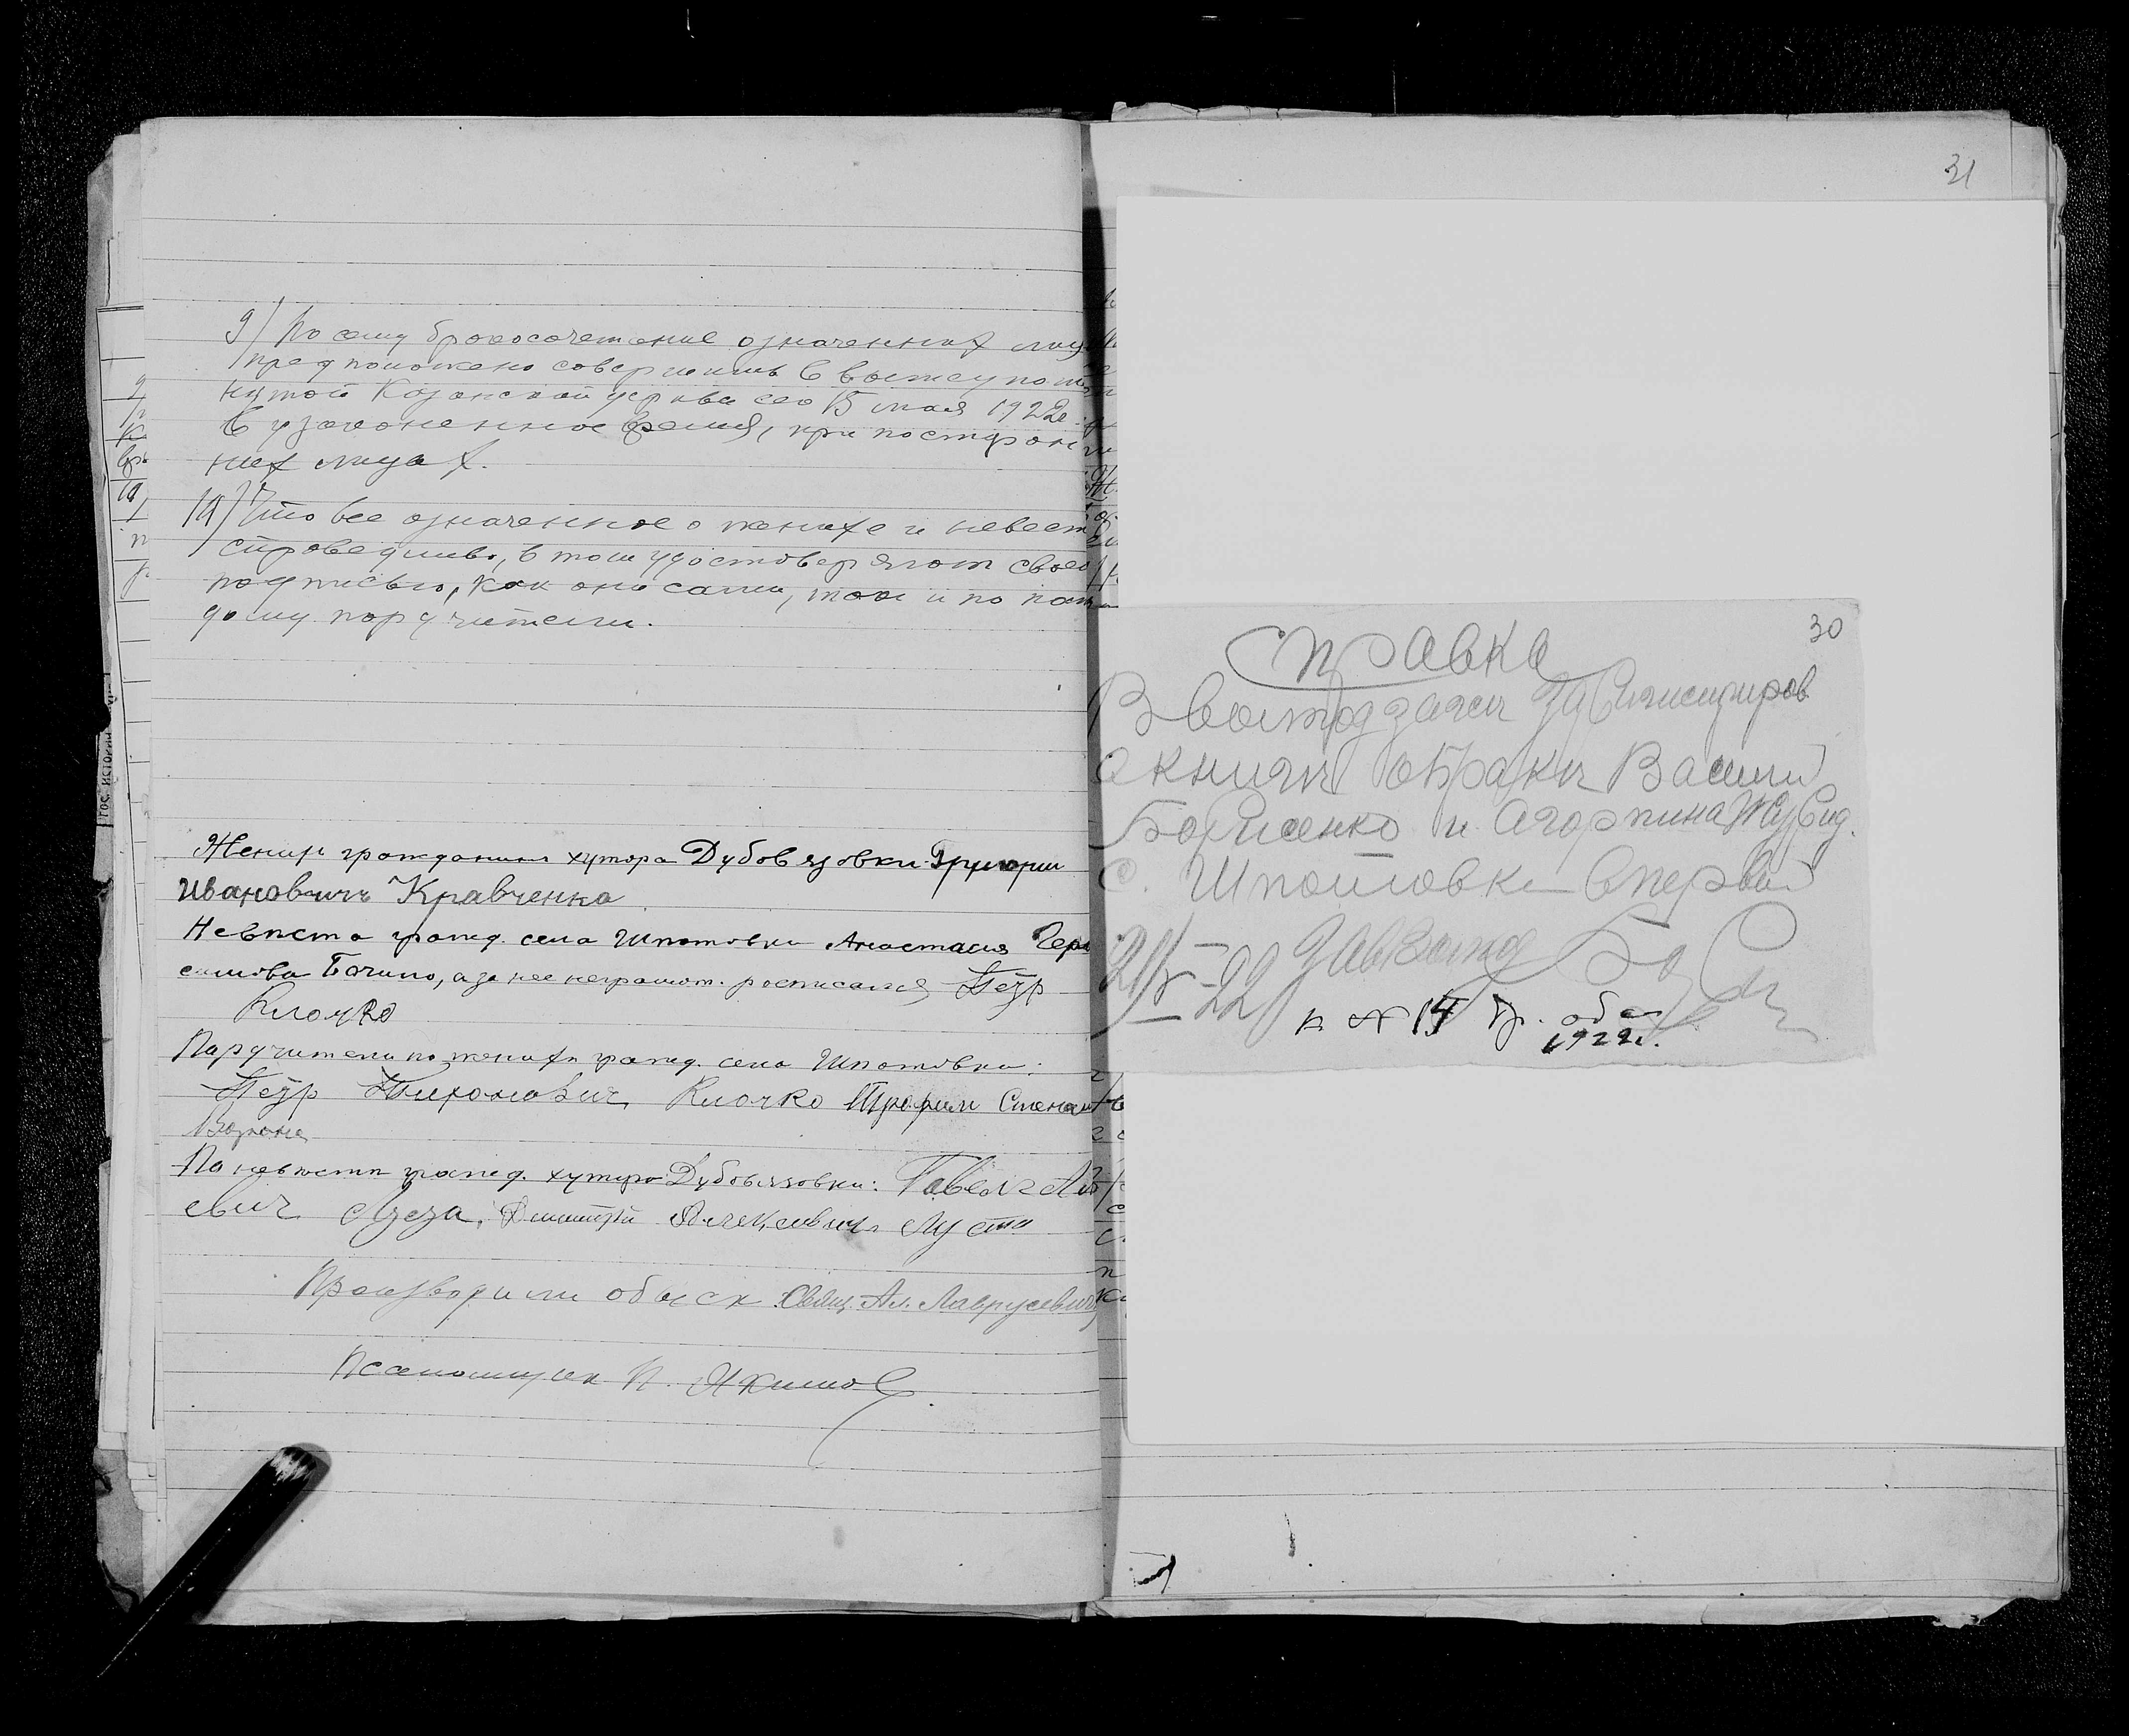 9) По сему бракосочетание означенных лиц
предположено совершить в вышеупомя
нутой Казанской церкви сего 15 мая 1922 г.
в узаконенное время, при посторон
них лицах.
10) Что все означенное о женихе и невест
справедливо, в том удостоверяют свое
подписью, как они сами, так и по каж
дому поручители.
Жених гражданин хутора Дубовязовки Григорий
Ивановичъ Кравченко
Невѣста гражд. села Шпотовки Анастасия Гера
симова Бачило, а за нее неграмот. росписался Пётр
Клочко
Паручители по женихѣ гражд. села Шпотовки:
Пётр Тихонович Клочко Трофим Степан
Ворона
По невѣстѣ гражд. хутора Дубовязовки: Павел
евич Луста, Дмитрій Алексеевичъ Луста
Производили обыск Свящ. Ал. Лаврусевич
Псаломщик П. Якимов
31
30
Справка
В волподзагсе
книги о браки Васили
Борисенко и Агорпина
с. Шпотовки впервы
Завволпод
к № 14 бр. обы
1922 г.
Гос. истории